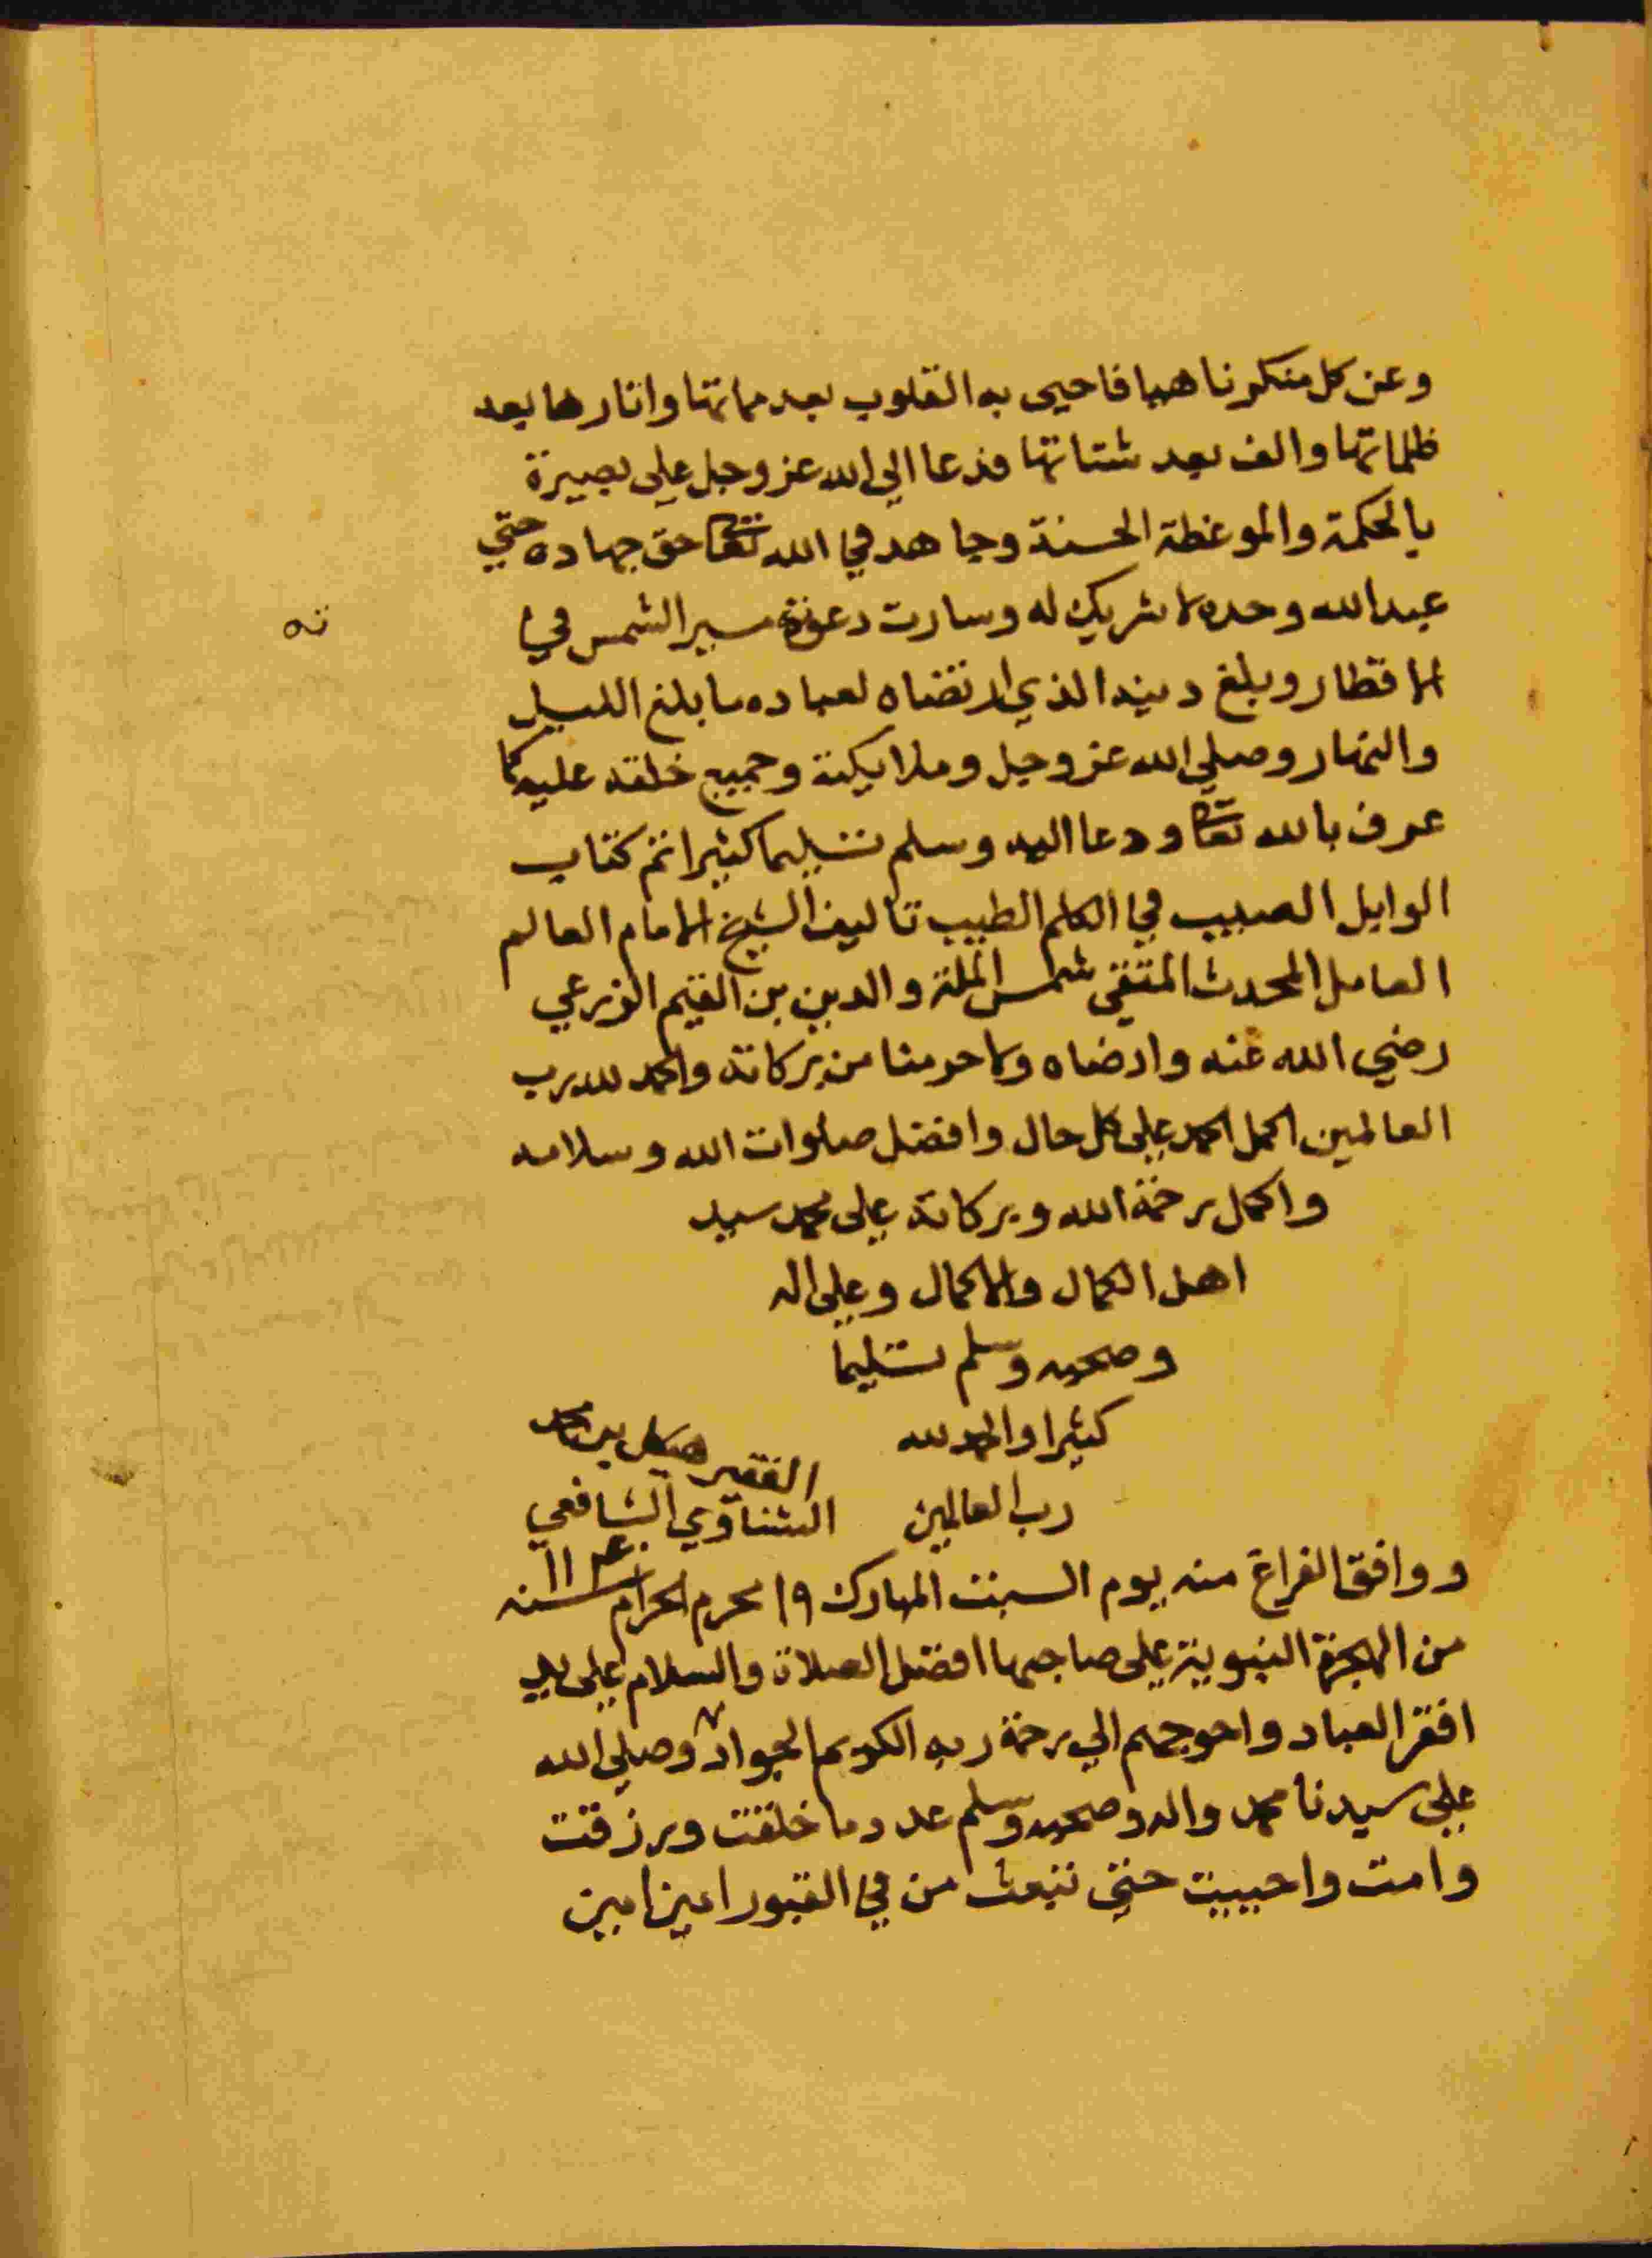 وعن كل منكر ناهيا فاحيى به القلوب بعد مماتها وانارها بعد
ظلماتها والف بعد شتاتها فدعا الي الله عز وجل علي بصيرة
بالحكمة والموعظة الحسنة وجاهد في الله تعا حق جهاده حتي
عبد الله وحده لا شريك له وسارت دعوة مسير الشمس في
ته
الاقطار وبلغ دينه الذي ارتضاه لعباده ما بلغ الليل
والنهار وصلي الله عز وجل وملايكته وجميع خلقه عليه كما
عرف بالله تعا ودعا اليه وسلم تسليما كثيرا تم كتاب
الوابل الصيب في الكلم الطيب تاليف الشيخ الامام العالم
العامل المحدث المتقي شمس الملة والدين بن القيم الزرعي
رضي الله عنه وارضاه ولا حرمنا من بركاته والحمد لله رب
العالمين اكمل الحمد علي كل حال وافضل صلوات الله وسلامه
واكمل رحمة الله وبركاته علي محمد سيد
اهل الكمال والاكمال وعلي اله
وصحبه وسلم تسليما
كثيرا والحمد لله
رب العالمين
الفقير بن محمد
الشناوي الشافعي
ووافق الفراغ منه يوم السبت المبارك ١٩ محرم الحرام سنه
من الهجرة النبوية علي صاحبها افضل الصلاة والسلام علي يد
افقر العباد واحوجهم الي رحمة ربه الكريم الجواد وصلي الله
علي سيدنا محمد واله وصحبه وسلم عدد ما خلقت ورزقت
وامت واحييت حتي تبعث من في القبور امين امين